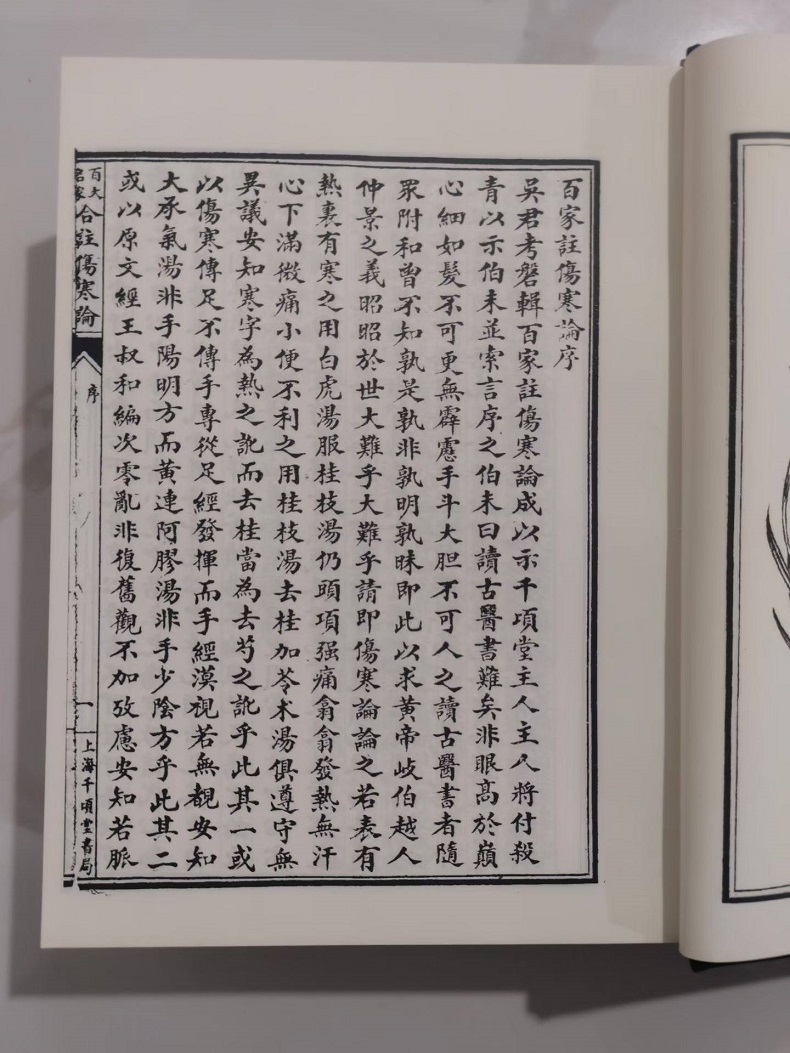 百家註傷寒論序
吳君考槃輯百家註傷寒論成以示千頃堂主人主人將付殺
青以示伯未並索言序之伯未曰讀古醫書難矣非眼高於巔
心細如髮不可更無霹靂手斗大胆不可人之讀古醫書者隨
眾附和曾不知孰是孰非孰明孰昧即此以求黃帝岐伯越人
仲景之義昭昭於世大難乎大難乎請即傷寒論論之若表有
熱裏有寒之用白虎湯服桂枝湯仍頭項强痛翕翕發熱無汗
心下滿微痛小便不利之用桂枝湯去桂加苓术湯俱遵守無
異議安知寒字為熱之訛而去桂當為去芍之訛乎此其一或
以傷寒傳足不傳手專從足經發揮而手經漠視若無覩安知
大承氣湯非手陽明方而黃連阿膠湯非手少陰方乎此其二
或以原文經王叔和編次零亂非復舊觀不加攷慮安知若脈
百大名家合註傷寒論
序
一
上海千頃堂書局